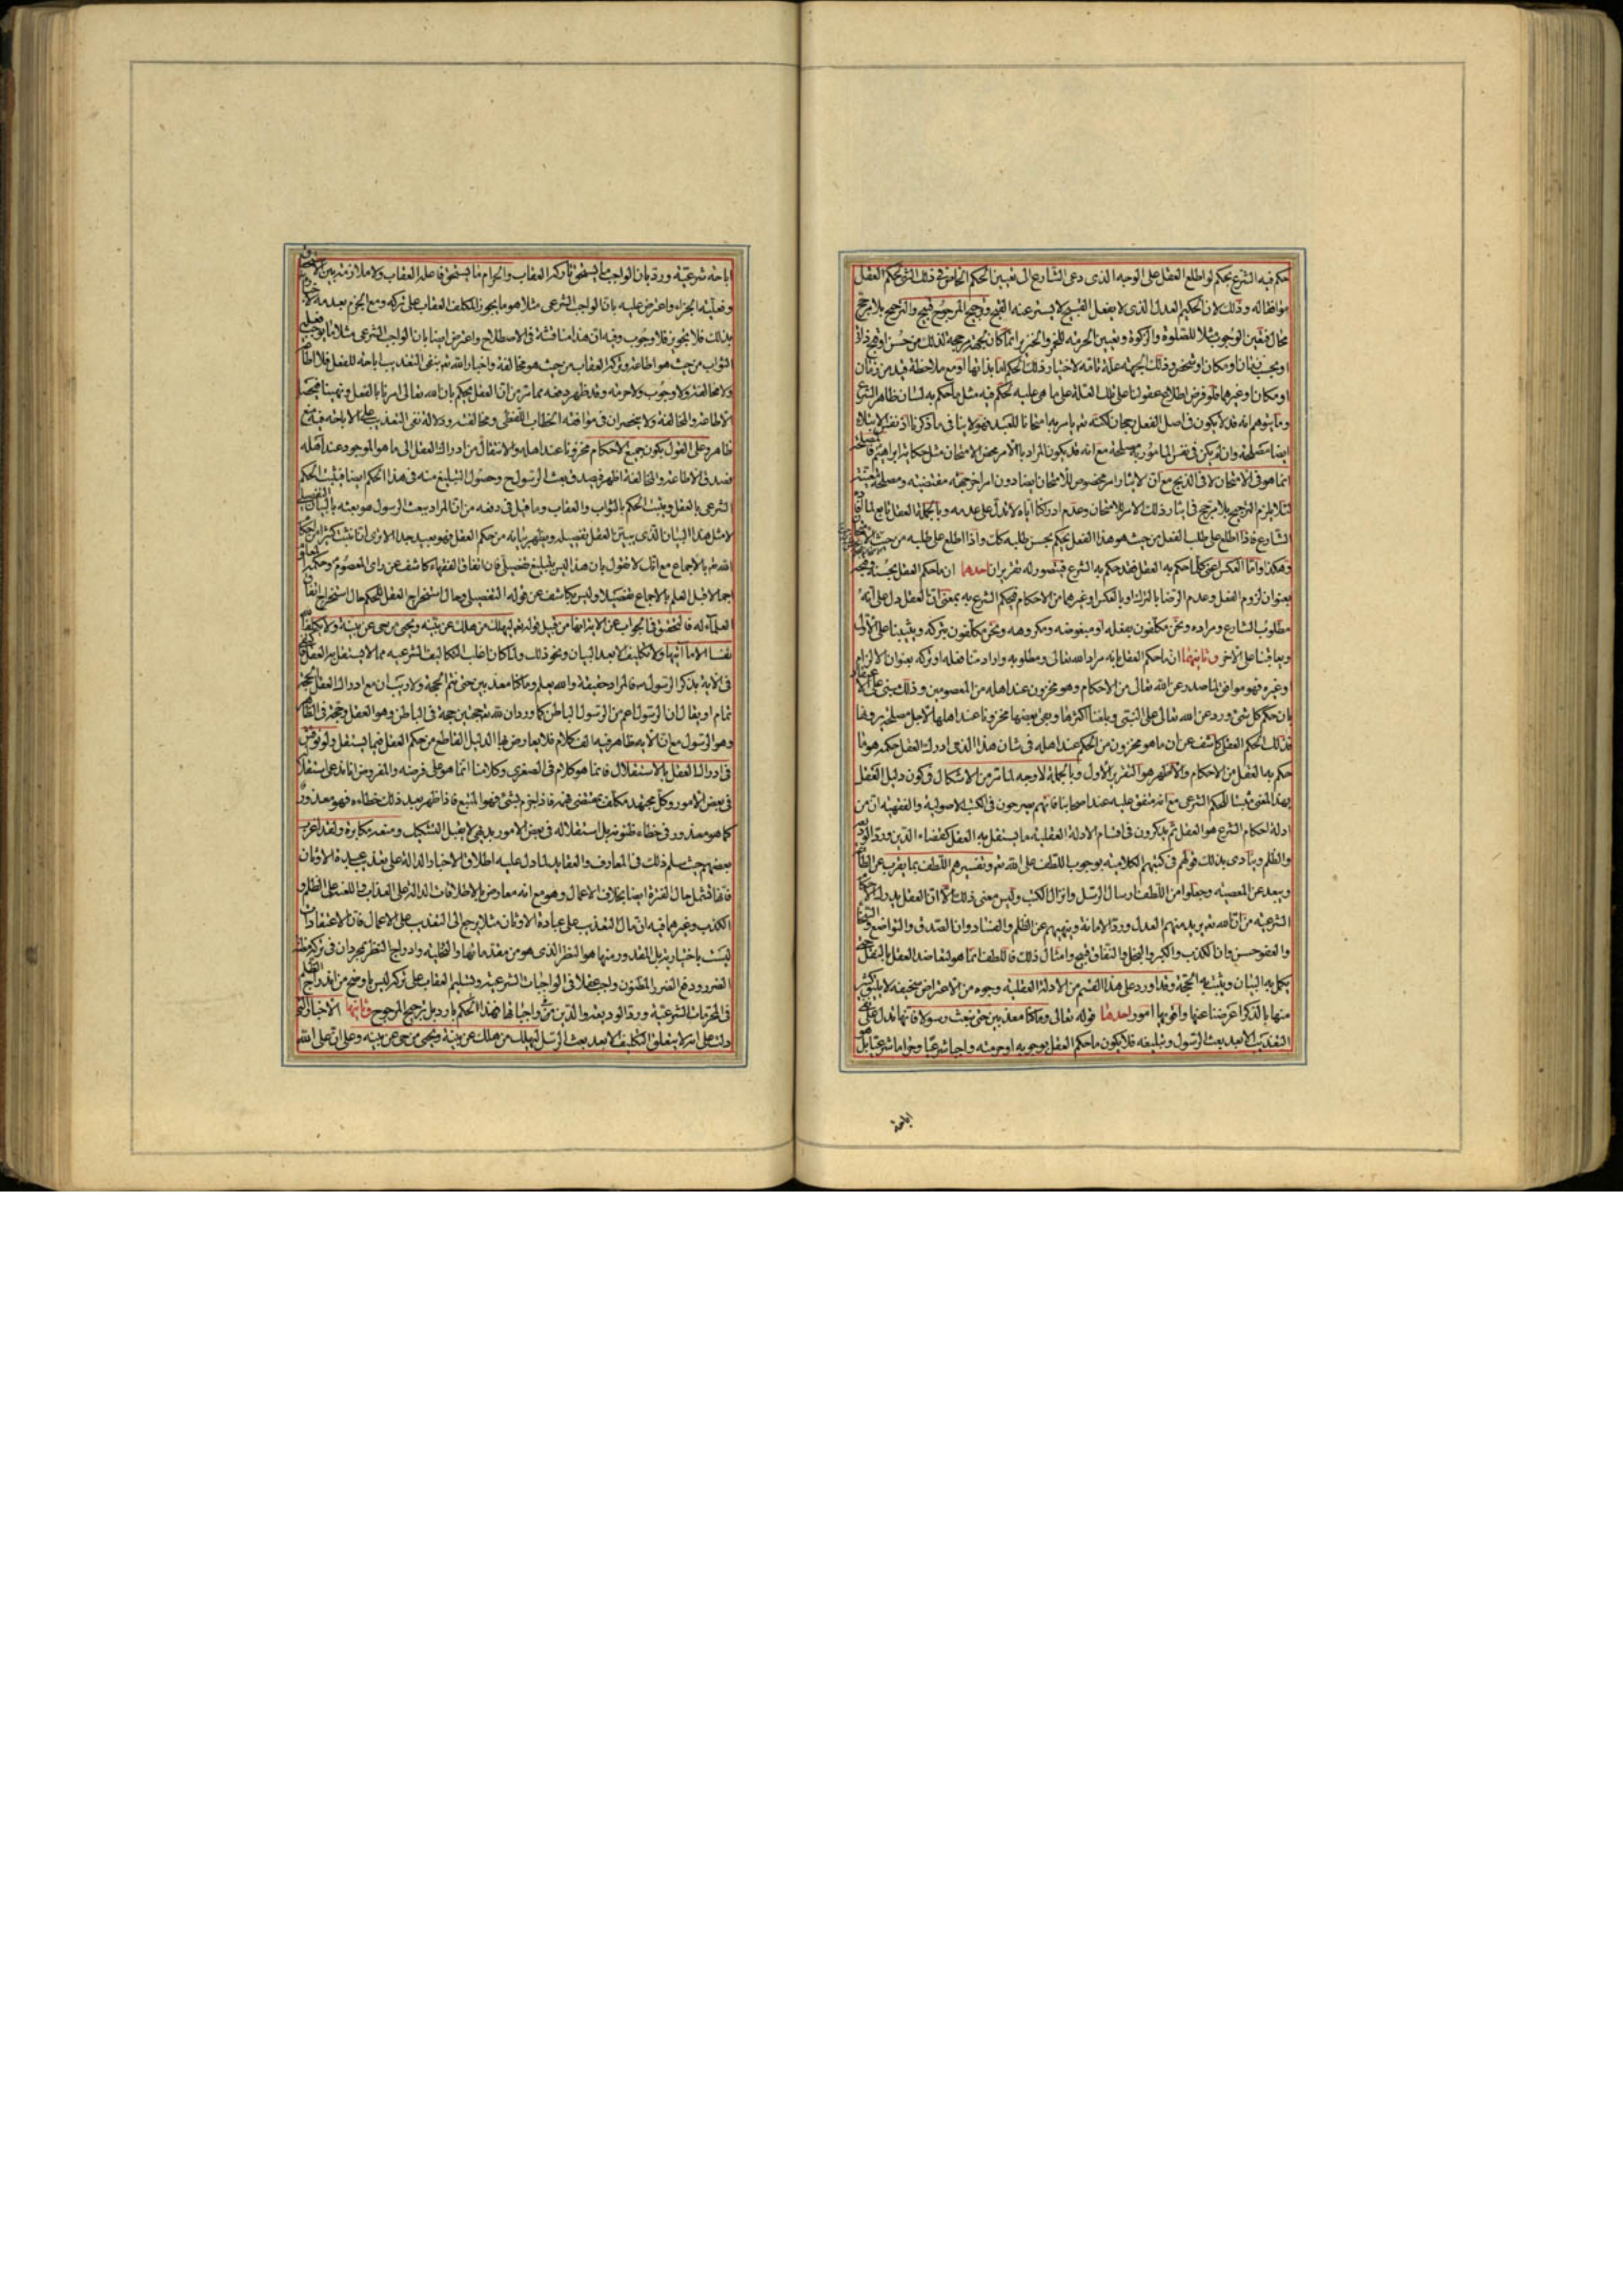 حكم فيه الشرع بحكم لو اطلع العقل على الوجه الذى دعى الشارع الى تعيين الحكم الخاص فى ذلك الشئ لحكم العقل
موافقا له وذلك لان الحكيم العدل الذى لا يفعل القبيح لا يستر عنه القبيح وترجيح المرجوح قبيح والترجيح بلا مرجح
محال فتعيين الوجوب مثلا للصلوة والزكوة وتعيين الحرمة للخمر والخنزير انما كان لجهة مرجحة لذلك من حسن او قبح ذاتى
او بحسب زمان او مكان او شخص وذلك الجهة علة تامة لاختيار ذلك الحكم اما بذاتها او مع ملاحظة قيد من زمان
او مكان وغيرهما فلو فرض اطلاع عقولنا على تلك العلة على ما هى عليه لحكم فيه مثل ما حكم به لسان ظاهر الشرع
وما يتوهم انه قد لا يكون فى اصل الفعل رجحان لكنه تعالى يامر به امتحانا للعبد فهو لا ينافى ما ذكرنا اذ نفس الابتلاء
ايضا مصلحة وان لم يكن فى نفس المامور به مصلحة مع انه قد يكون المراد بالامر محض الامتحان مثل حكاية ابراهيم فالمصلحة
انما هو فى الامتحان لا فى الذبح مع ان الايثار امر مخصوص للامتحان ايضا دون امر اخر جهة مقتضية ومصلحة معينة
لئلا يلزم الترجيح بلا مرجح فى ايثار ذلك الامر للامتحان وعدم ادراكنا اياه لا يدل على عدمه وبالجملة العقل تابع لما افاده
الشارع فاذا اطلع على طلب الفعل من حيث هو هذا الفعل يحكم بحسن طلبه كك واذا اطلع على طلبه من حيث الامتحان
وهكذا واما العكس اعنى كلما حكم به العقل فقد حكم به الشرع فيتصور له تقريران احدهما ان ما حكم العقل بحسنه او قبحه
بعنوان لزوم الفعل وعدم الرضا بالترك او بالعكس او غيرهما من الاحكام فيحكم الشرع به بمعنى ان العقل دل على انه
مطلوب الشارع ومراده ونحن مكلفون بفعله او مبغوضه ومكروهه ونحن مكلفون بتركه ويثيبنا على الاول
ويعاقبنا على الاخر وثانيهما ان ما حكم العقل بانه مراد الله تعالى ومطلوبه واراد منا فعله او تركه بعنوان الالزام
او غيره فهو موافق لما صدر عن الله تعالى من الاحكام وهو مخزون عند اهله من المعصومين وذلك يبتنى على الاعتقاد
بان حكم كل شئ ورد عن الله تعالى على النبى وبلغنا اكثرها وبقى بعضها مخزونا عند اهلها لاجل مصلحة يرونها
فذلك الحكم العقلى كاشف عن ان ما هو مخزون من الحكم عند اهله فى شان هذا الذى ادرك العقل حكمه هو ما
حكم به العقل من الاحكام والاظهر هو التقرير الاول وبالجملة لا وجه لما ترى من الاشكال فى كون دليل العقل
بهذا المعنى مثبتا للحكم الشرعى مع انه متفق عليه عند اصحابنا فانهم يصرحون فى الكتب الاصولية والفقهية ان من
ادلة احكام الشرع هو العقل ثم يذكرون فى اقسام الادلة العقلية ما يستقل به العقل كقضاء الدين ورد الوديعة
والظلم وينادى بذلك قولهم فى كتبهم الكلامية بوجوب اللطف على الله تعالى وتفسيرهم اللطف بما يقرب عن الطاعة
ويبعد عن المعصية وجعلوا من اللطف ارسال الرسل وانزال الكتب وليس معنى ذلك الا ان العقل يدرك الاحكام
الشرعية من ان الله تعالى يريد منهم العدل ورد الامانة وينهيهم عن الظلم والفساد وان الصدق والتواضع والسخاء
والعفو حسن وان الكذب والكبر والبخل والنفاق قبيح وامثال ذلك فاللطف انما هو لتعاضد العقل بالنقل حتى
يكمل به البيان ويثبت به الحجة وقد اورد على هذا القسم من الادلة العقلية وجوه من الاعتراض سخيفة لا يليق كثير
منها بالذكر اعرضنا عنها واقويها امور احدها قوله تعالى وما كنا معذبين حتى نبعث رسولا فانها تدل على نفى
التعذيب الا بعد بعث الرسول وتبليغه فلا يكون ما حكم العقل بوجوبه او حرمته واجبا شرعيا وحراما شرعيا بل هو
اباحة
اباحة شرعية ورد بان الواجب ما يستحق تاركه العقاب والحرام ما يستحق فاعله العقاب ولا ملازمة بين الاستحقاق
وفعلية الجزاء واعترض عليه بان الواجب الشرعى مثلا هو ما يجوز المكلف العقاب على تركه ومع الجزم بعدمه لاخباره
بذلك فلا تجويز فلا وجوب وفيه ان هذا مناقشة فى الاصطلاح واعترض ايضا بان الواجب الشرعى مثلا ما يوجب فعله
الثواب من حيث هو اطاعة وتركه العقاب من حيث هو مخالفة واخبار الله تعالى بنفى التعذيب اباحة للفعل فلا اطاعة
ولا مخالفة ولا وجوب ولا حرمة وقد ظهر دفعه مما مر من ان العقل يحكم بان الله تعالى امرنا بالفعل ونهينا فيحصل
الاطاعة والمخالفة ولا ينحصران فى موافقة الخطاب اللفظى ومخالفته ودلالة نفى التعذيب على الاباحة فيه منع
ظاهر وعلى القول بكون جميع الاحكام مخزونا عند اهله والانتقال من ادراك العقل الى ما هو الموجود عند اهله
فصدق الاطاعة والمخالفة اظهر فيصدق بعث الرسول ح وحصول التبليغ منه فى هذا الحكم ايضا فيثبت الحكم
الشرعى بالعقل ويثبت الحكم بالثواب والعقاب وما قيل فى دفعه من ان المراد ببعث الرسول هو بعثه بالبيان التفصيلى
لا مثل هذا البيان الذى يبين العقل تفصيله ويظهر بيانه من حكم العقل فهو بعيد جدا الا ترى انا نثبت كثيرا من احكام
الله تعالى بالاجماع مع انك لا تقول بان هذا ليس بتبليغ تفصيلى فان اتفاق الفقهاء كاشف عن راى المعصوم وحكمه
اجمالا قبل العلم بالاجماع تفصيلا وليس بكاشف عن قوله التفصيلى وحال استخراج العقل للحكم حال استخراج اتفاق
العلماء له فالتحقيق فى الجواب عن الاية انها من قبيل قوله تعالى ليهلك من هلك عن بينة ويحيى من حى عن بينة ولا يكلف الله
نفسا الا ما آتيها ولا تكليف الا بعد البيان ونحو ذلك ولما كان اغلب التكاليف الشرعية مما لا يستقل به العقل
فى الاية بذكر الرسول فالمراد حقيقة والله يعلم وما كنا معذبين حتى نتم الحجة ولا ريب ان مع ادراك العقل الحجة
تمام او يقال ان الرسول اعم من الرسول الباطن كما ورد ان لله تعالى حجتين حجة فى الباطن وهو العقل وحجة فى الظاهر
وهو الرسول مع ان الاية ظاهر فيه الف كلام فلا يعارض بها الدليل القاطع من حكم العقل فيما يستقل ولو نوقش
فى ادراك العقل بالاستقلال فانما هو كلام فى الصغرى وكلامنا انما هو على فرضه والمفروض انا ندعى استقلاله
فى بعض الامور وكل مجتهد مكلف بمقتضى فهمه فاذا جزم بشئ فهو المتبع فاذا ظهر بعد ذلك خطاءه فهو معذور
كما هو معذور فى خطاء ظنونه بل استقلاله فى بعض الامور بديهى لا يقبل التشكيك ومنعه مكابرة ولقد اعرب
بعضهم حيث سلم ذلك فى المعارف والعقايد لما دل عليه اطلاق الاخبار الدالة على تعذيب عبدة الاوثان
فانها تشمل حال الفترة ايضا بخلاف الاعمال وهو مع انه معارض بالاطلاقات الدالة على العذاب واللعنة على الظلم و
الكذب وغيرهما فيه ان مآل التعذيب على عبادة الاوثان مثلا يرجع الى التعذيب على الاعمال فان الاعتقادات
ليست باختيارية بل المقدور منها هو النظر الذى هو من مقدماتها او التخلية وادراج النظر بمجرد ان فى تركه مظنة
الضرر ودفع الضرر المظنون واجب عقلا فى الواجبات الشرعية وتسليم العقاب على تركه ليس باوضح من اندراج الظلم
فى المحرمات الشرعية ورد الوديعة والدين فى واجباتها فهذا الحكم بارد بل ترجيح المرجوح وثانيها الاخبار التى
دلت على انه لا يتعلق التكليف الا بعد بعث الرسل ليهلك من هلك عن بينة ويحيى من حى عن بينة وعلى ان على الله